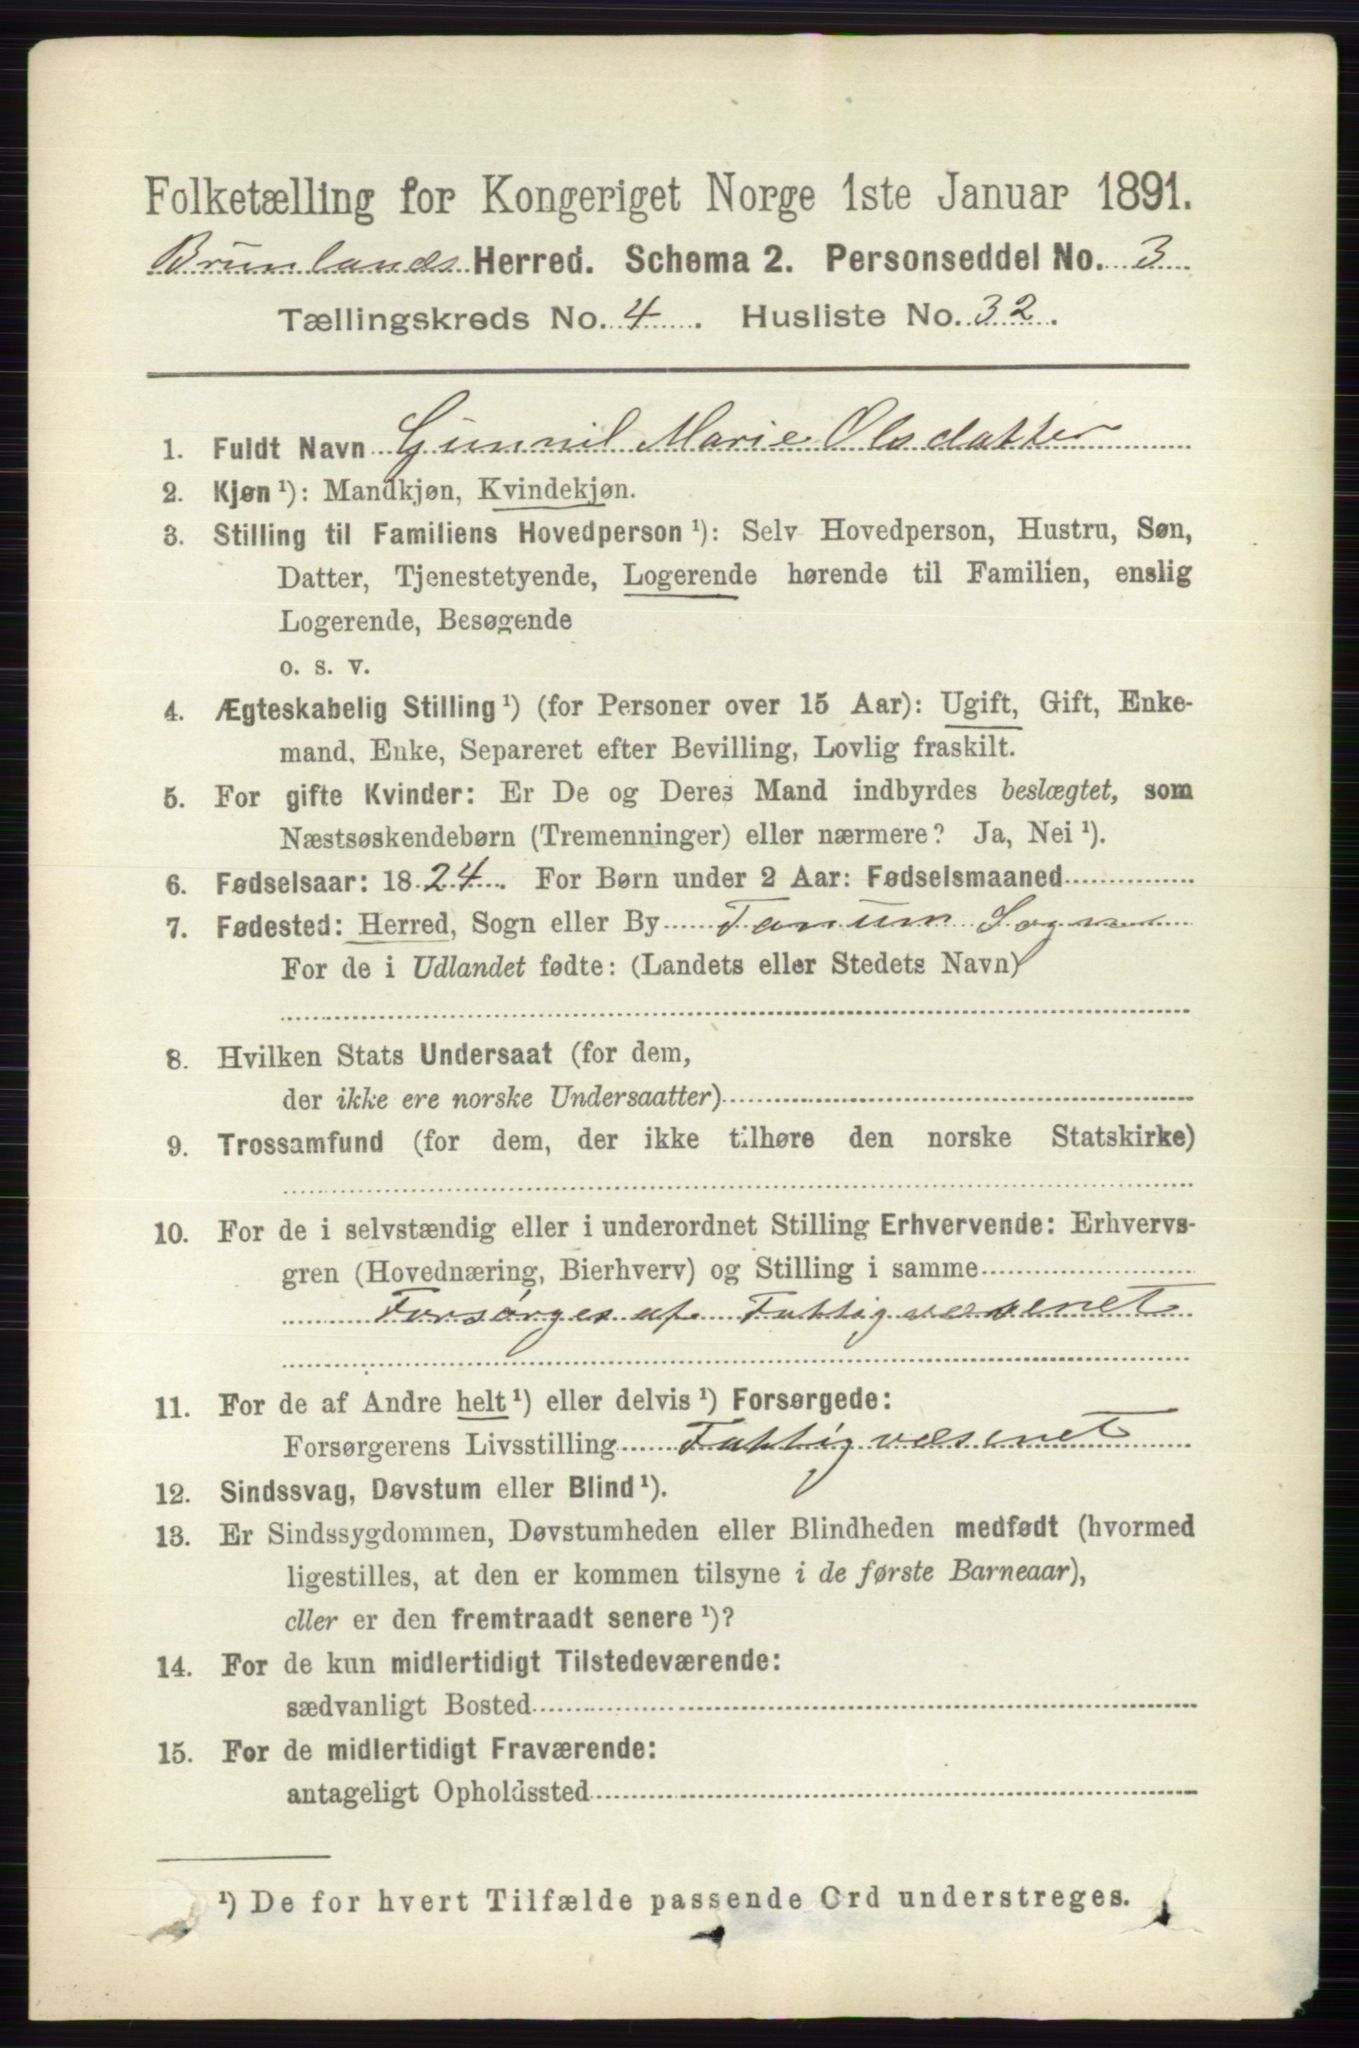 Folketælling for Kongeriget Norge 1ste Januar 1891.
Brunlands Herred. Schema 2. Personseddel No. 3
Tællingskreds No. 4. Husliste No. 32.
1. Fuldt Navn Gunnil Marie Olsdatter
2. Kjøn ¹): Mandkjøn, Kvindekjøn.
3. Stilling til Familiens Hovedperson ¹): Selv Hovedperson, Hustru, Søn,
Datter, Tjenestetyende, Logerende hørende til Familien, enslig
Logerende, Besøgende
o. s. v.
4. Ægteskabelig Stilling ¹) (for Personer over 15 Aar): Ugift, Gift, Enke-
mand, Enke, Separeret efter Bevilling, Lovlig fraskilt.
5. For gifte Kvinder: Er De og Deres Mand indbyrdes beslægtet, som
Næstsøskendebørn (Tremenninger) eller nærmere? Ja, Nei ¹).
6. Fødselsaar: 1824. For Børn under 2 Aar: Fødselsmaaned
7. Fødested: Herred, Sogn eller By Tanum Sogn
For de i Udlandet fødte: (Landets eller Stedets Navn)
8. Hvilken Stats Undersaat (for dem,
der ikke ere norske Undersaatter)
9. Trossamfund (for dem, der ikke tilhøre den norske Statskirke)
10. For de i selvstændig eller i underordnet Stilling Erhvervende: Erhvervs-
gren (Hovednæring, Bierhverv) og Stilling i samme
Forsørges af Fattigvæsenet
11. For de af Andre helt ¹) eller delvis ¹) Forsørgede:
Forsørgerens Livsstilling Fattigvæsenet
12. Sindssvag, Døvstum eller Blind ¹).
13. Er Sindssygdommen, Døvstumheden eller Blindheden medfødt (hvormed
ligestilles, at den er kommen tilsyne i de første Barneaar),
eller er den fremtraadt senere ¹)?
14. For de kun midlertidigt Tilstedeværende:
sædvanligt Bosted
15. For de midlertidigt Fraværende:
antageligt Opholdssted
¹) De for hvert Tilfælde passende Ord understreges.